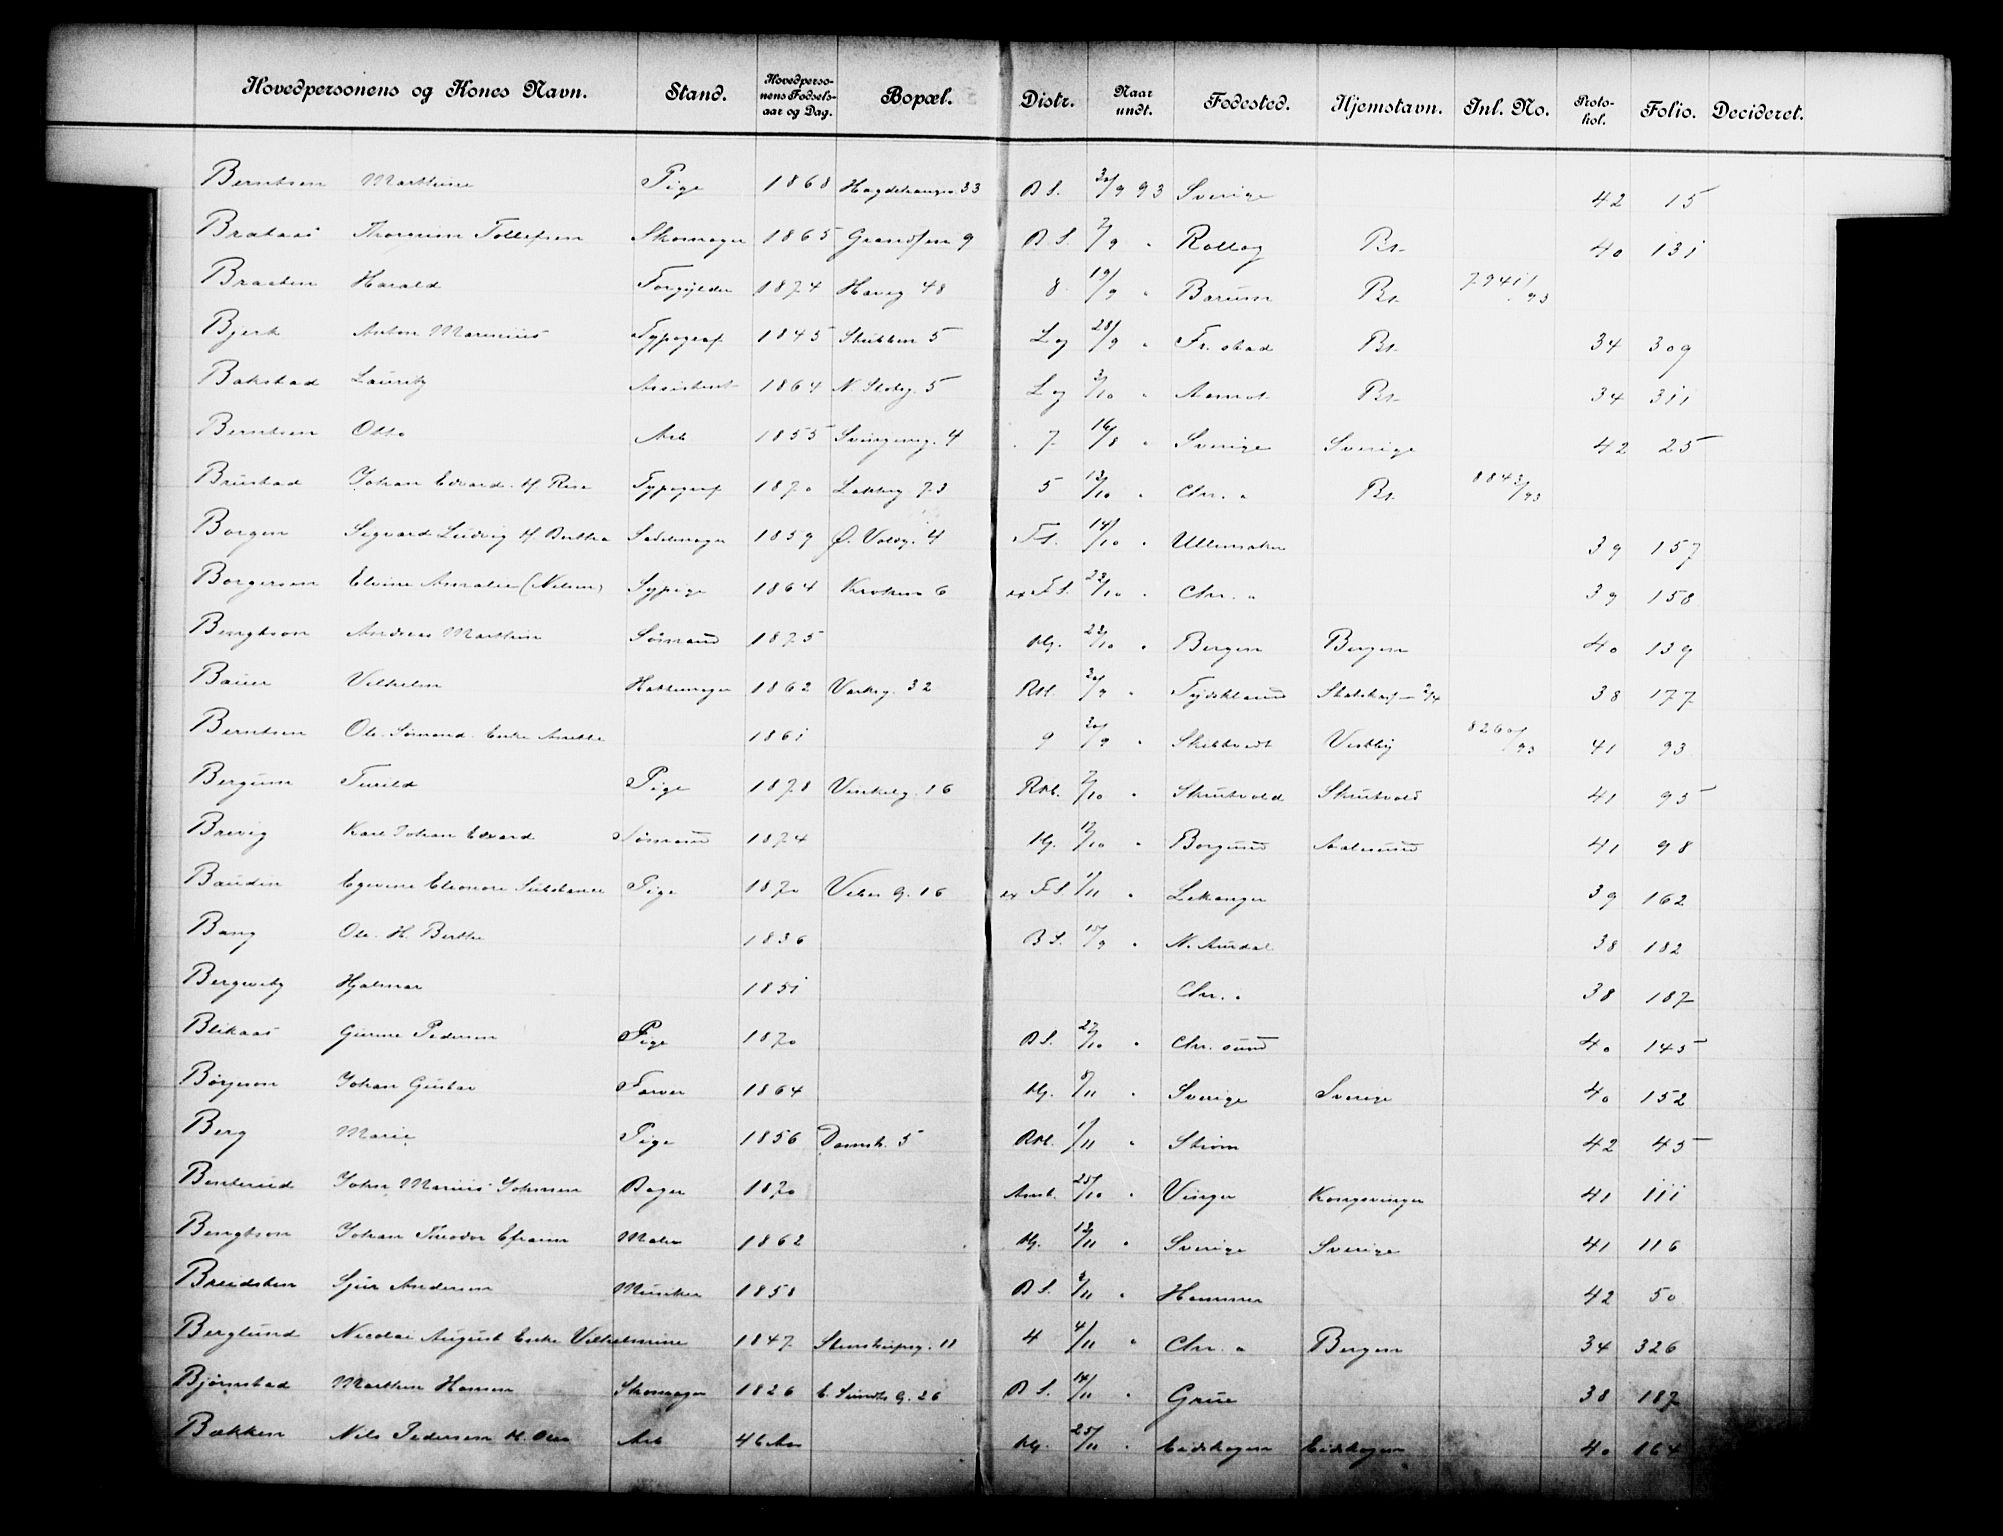 Hovedpersonens og Kones Navn. Stand. Hovedpersonens Fødselsaar og Dag. Bopæl. Distr. Naar undt. Fødested. Hjemstavn. Inl. No. Protokol. Folio. Decideret.
Berntsen Marthine Pige 1868 33 B S. 30/9 93 Sverige 42 15
Brataas Thorsten Tollefsen Skomager 1865 Grændsen 9 B S. 7/9 " Rollag Bt. 40 131
Braaten Harald Forgylder 1874 Haveg 48 8 19/9 " Bærum Bt. 7941/93
Bjerk Anton Marinius Typograf 1845 Stubben 5 Lg 28/9 " Fr. stad Bt. 34 309
Bakstad Lauritz Assistent 1864 5 Lg 3/10 " Aamot Bt. 34 311
Berntsen Otto Arb 1855 Svingeng. 4 7 16/8 " Sverige Sverige 42 25
Brustad Johan Edvard. H. Typograf 1870 Lakkeg 73 5 13/10 " Chr. a Bt. 8843/93
Borgen Sigvard Ludvig H. Berthe Sadelmager 1859 Ø. Voldg. 4 F S. 14/10 " Ullensaker 39 157
Borgersen Elvine Amalie (Nilsen) Sypige 1864 Kroken 6 ex F S. 23/10 " Chr. a 39 158
Bengtson Andreas Marthin Sømand 1875 Hg. 23/10 " Bergen Bergen 40 139
Bauer Vilhelm Hattemager 1862 32 Rkl. 30/9 " Tydskland 38 177
Berntsen Ole. Sømand. Enke Anette 1861 9 30/9 " Skibtvedt Vestby 8260/93 41 93
Bergum Turild Pige 1878 Vinkelg. 16 Rkl. 7/10 " Skrutvold Skrutvold 41 95
Brevig Karl Johan Edvard Sømand 1874 Hg. 17/10 " Borgund Aalesund 41 98
Baudin Eleonore Pige 1870 G. 16 ex F S. 1/11 " Lekanger 39 162
Bang Ole. H. Berthe 1836 B S. 15/9 " N. Aurdal 38 182
Bergwitz Hjalmar 1851 Chr. a 38 187
Blikaas Gurine Pedersen Pige 1870 B S. 27/10 " Chr. sund 40 145
Børjeson Johan Gustav Farver 1864 Hg. 8/11 " Sverige Sverige 40 152
Berg Marie Pige 1856 Damstr. 5 Rkl. 17/11 " Strøm 42 45
Benterud John Marius Johnsen Bager 1870 Amb. 25/10 " Vinger Kongsvinger 41 111
Bengtson Johan Theodor Efraim Maler 1862 Hg. 13/11 " Sverige Sverige 41 116
Breidsten Sjur Andersen Musiker 1858 B S. 3/11 " Hammer 42 50
Berglund Nicolai August Enke Vilhelmine 1847 Stenstrupsg. 11 4 4/11 " Chr. a Bergen 34 326
Bjørnstad Marthin Hansen Skomager 1826 E. Sundts G. 26 B S. 14/11 " Grue 38 187
Bækken Nils Pedersen H. Arb 46 Aar Hg. 25/11 " Eidskogen Eidskogen 40 164